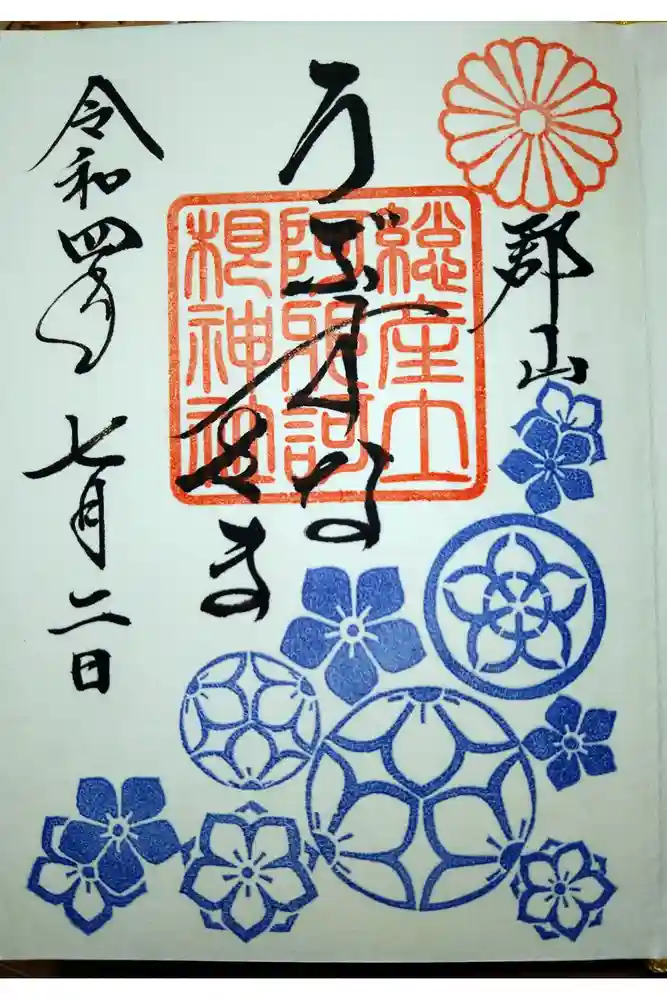 郡山
総産土
阿邪訶
根神社
うぶすな
さま
令和四年七月二日